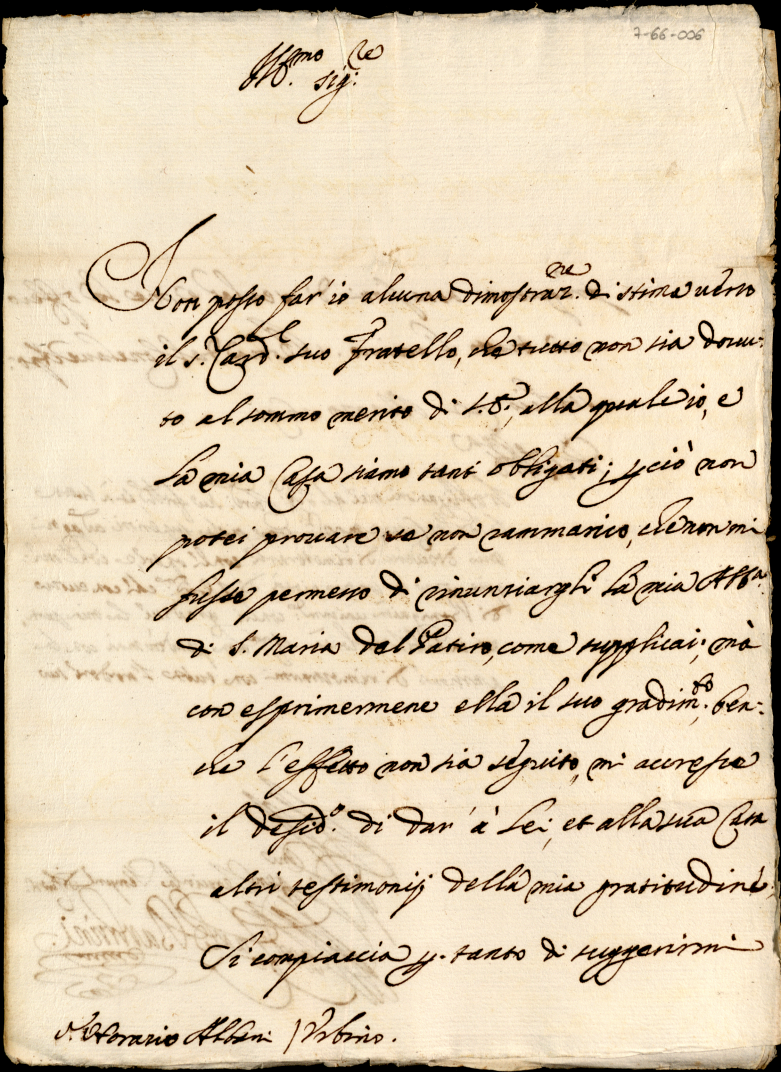 7-66-006
Ill.mo Sig.re
Non posso far' io alcuna dimostraz.ne di stima verso
il s.r Card.l suo fratello, che tutto non sia dovu-
to al sommo merito di S.E., alla quale io, e
la mia Casa siamo tanto obligati; p ciò non
potei provare se non rammarico, che non mi
fusse permesso di rinunziargli la mia Abb.a
di S. Maria del Patire, come supplicai; mà
con esprimermene ella il suo gradim.to, ben-
che l'effetto non sia seguito, mi accresce
il desid.o di dar' à Lei, et alla sua Casa
altri testimonij della mia gratitudine.
Si compiaccia p tanto di suggerirmi
S.r Horazio Albani / Urbino.